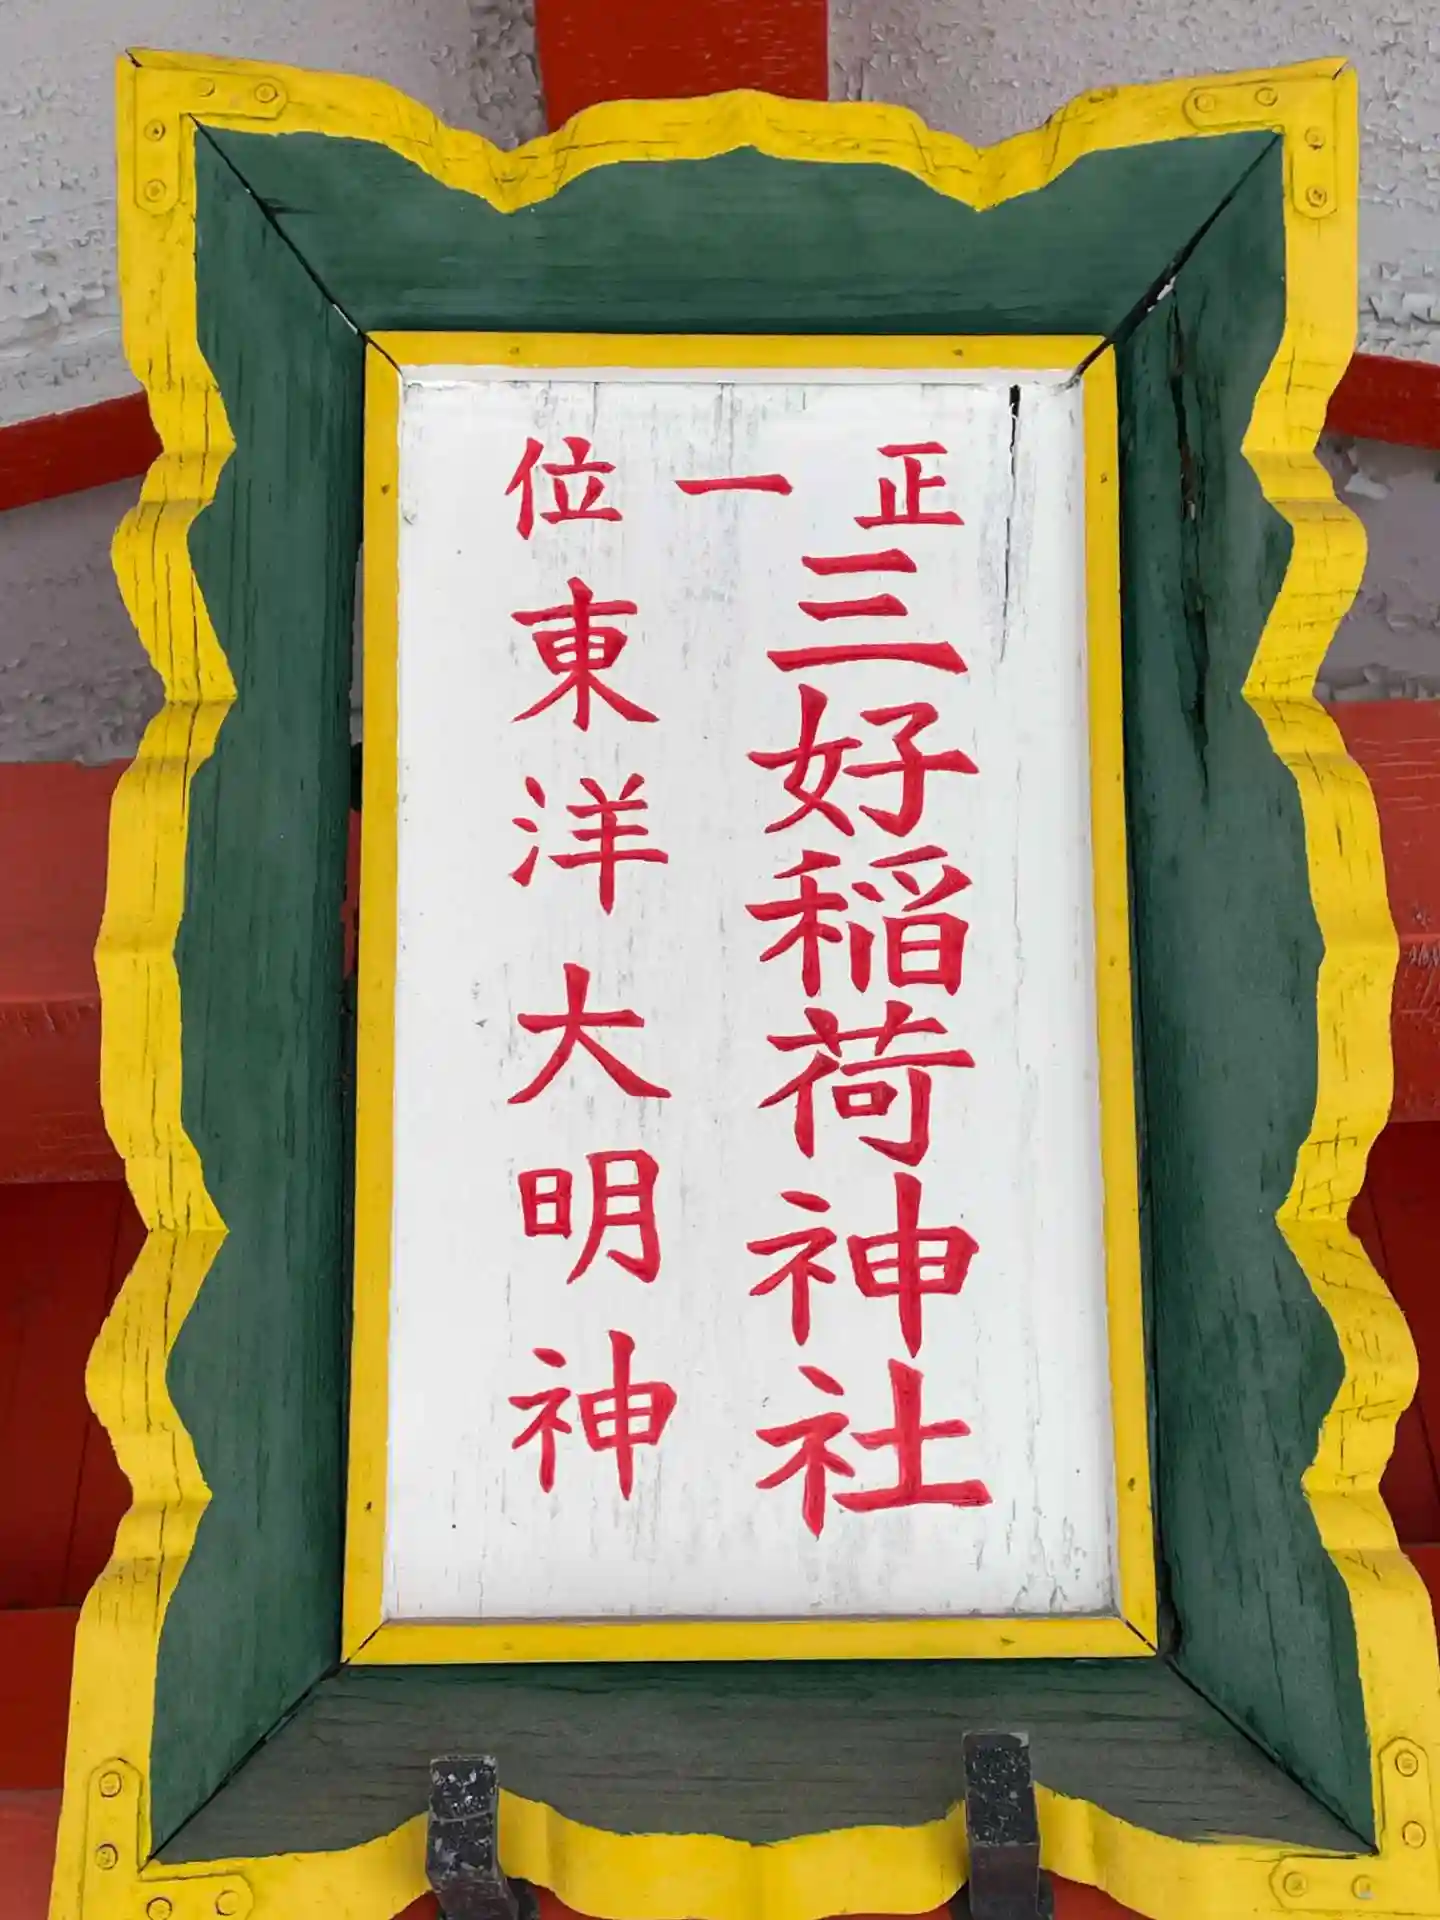 正一位
三好稲荷神社
東洋大明神